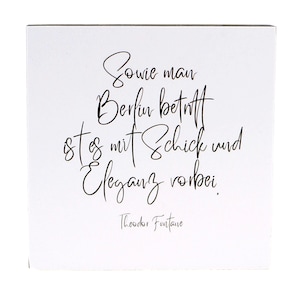 Sowie man
Berlin betritt
ist es mit Schick und
Eleganz vorbei.
Theodor Fontane